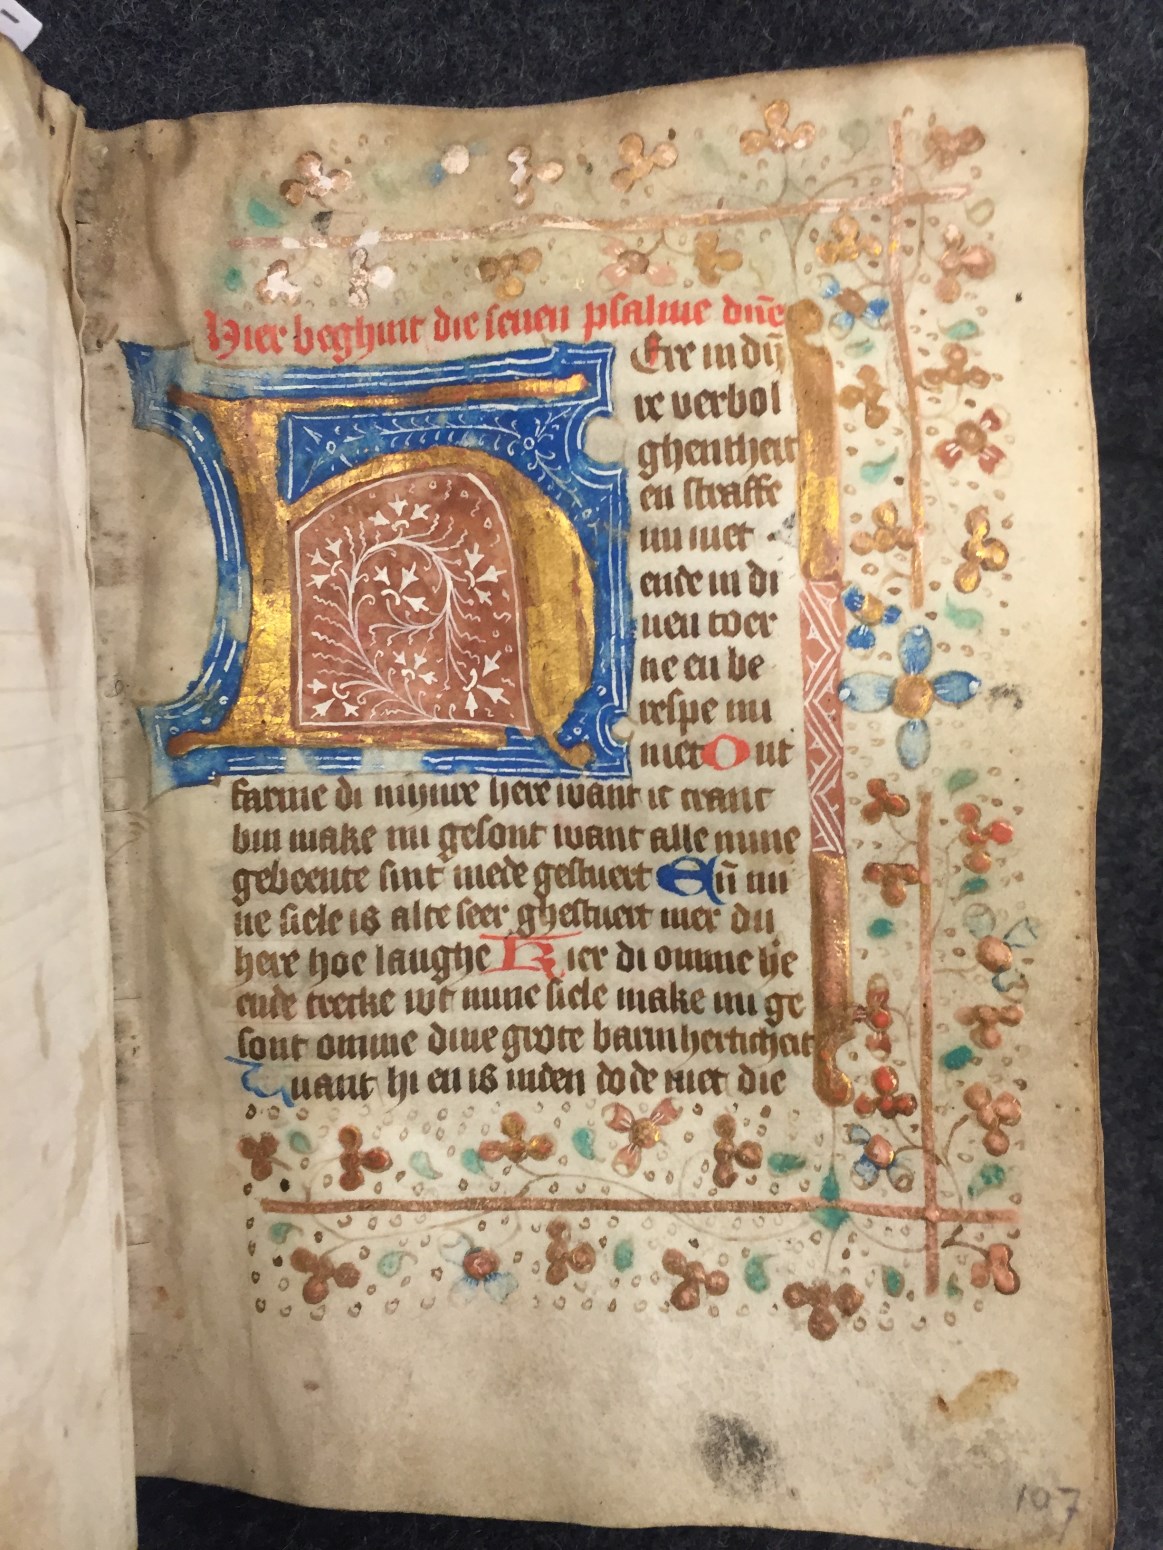 Hier beghint die seuen psalme dūe
H Ere in dij
re verbol
ghentheit
en straffe
mi niet
ende in di
nen toer
ne en be
respe mi
niet Ont
farme di mijnre here want ic cranc
bin make mi gesont want alle mine
gebeente sint mede gestuert Eñ mi
ne siele is alte seer ghestuert mer du
here hoe langhe Kier di omme he
ende trecke wt mine siele make mi ge
sont omme dine grote barmherticheit
Want hi en is inden dode niet die
107